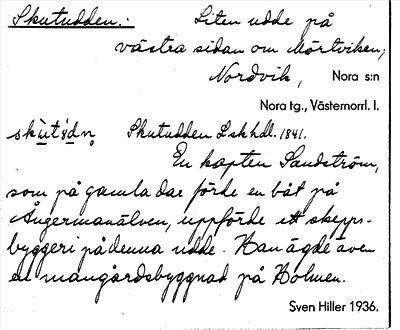 Skutudden.: Liten udde på
västra sidan om Mörtviken;
Nordvik, Nora s:n
Nora tg., Västernorrl. l.
skùtúdn̥ Skutudden Lskhdl. 1841.
En kapten Sandström,
som på gamla dar förde en båt på
Ångermanälven, uppförde ett skepps-
byggeri på denna udde. Han ägde även
en mangårdsbyggnad på Holmen.
Sven Hiller 1936.